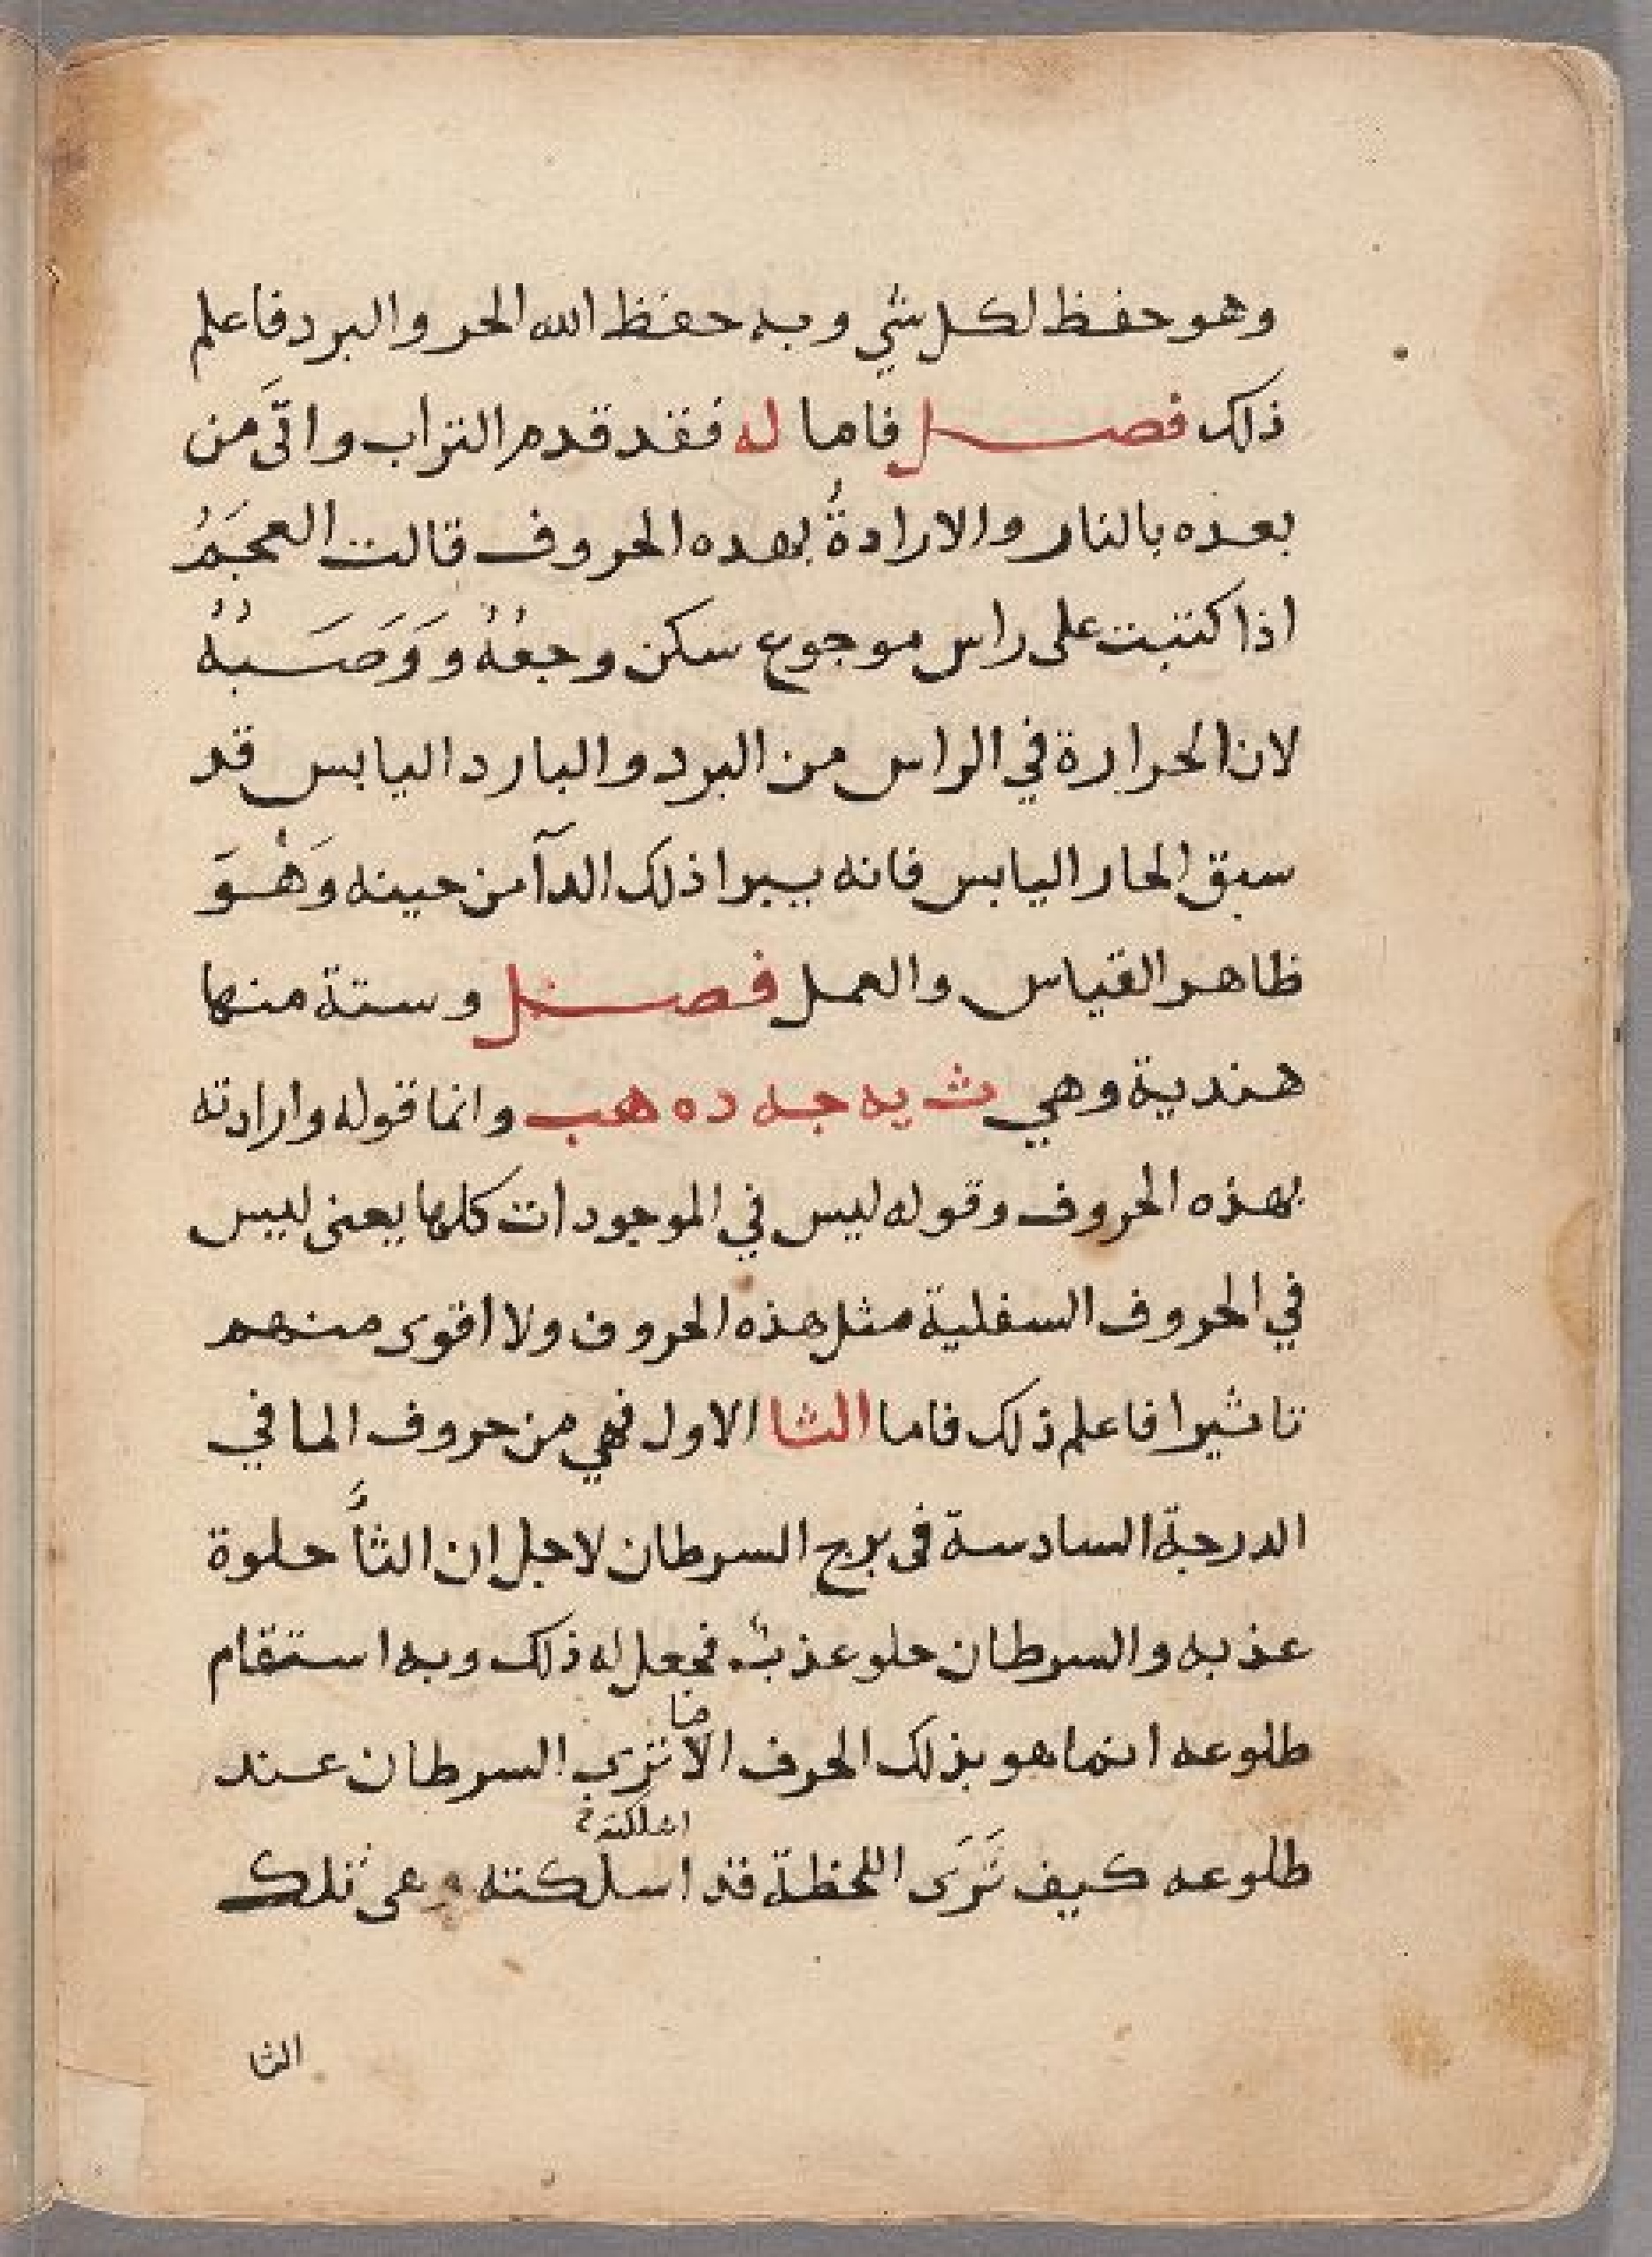 وهو حفظ لكل شي وبه حفظ الله الحر والبرد فاعلم
ذلك فصل فاما له فقد قدم التراب واتى من
بعده بالنار والارادةُ بهده الحروف قالت العجَمُ
اذا كتبت على راس موجوع سكن وجعُهُ و وَصَبُهُ
لان الحرارة في الراس من البرد والبارد اليابس قد
سبق الحار اليابس فانه يبرا ذلك الدآ من حينه وَهْوَ
ظاهر القياس والعمل فصل وستة منها
هندية وهي ث يه جه ده هب وانما قوله وارادته
بهذه الحروف وقوله ليس في الموجودات كلها يعنى ليس
في الحروف السفلية مثل هذه الحروف ولا اقوى منهم
تاثيرا فاعلم ذلك فاما الثا الاول فهي من حروف الما في
الدرجة السادسة فى برج السرطان لاجل ان الثأَ حلوة
عذبه والسرطان حلو عذبٌ فجعل له ذلك وبه استقام
طلوعه انما هو بذلك الحرف الا ترى السرطان عند
طلوعه كيف تَرَى اللحظة قد اسلكته وعى تلك
الثا